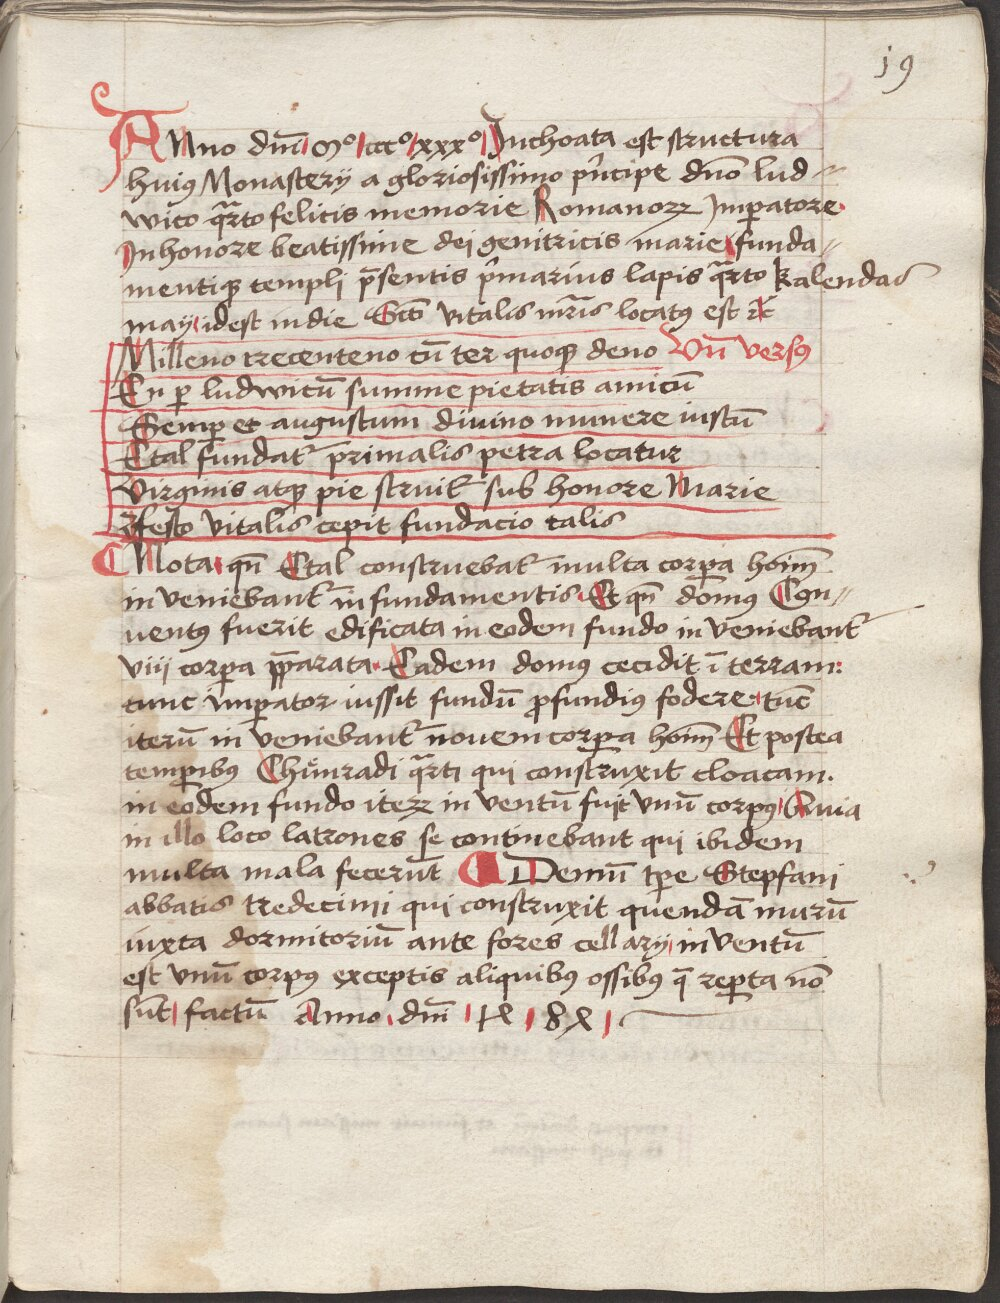 19
Anno dm̄ Mº cccº xxxº Inchoata est structura
huiꝰ Monastery a gloriosissimo pͥncipe dn̄o lud-
wico qᷓrto felicis memorie Romanoꝝ Imꝑatore
In honore beatissime dei genitricis marie funda-
mentiqꝫ templi p̄sentis pͥmarius lapis qᷓrto kalendas
may idest in die Sc̄i vitalis mr̄is locatꝰ est ⁊c̄
Milleno trecenteno cū ter quoqꝫ deno Vn̄ versꝰ
En ꝑ ludwicū summe pietatis amicū
Semꝑ et augustum diuino munere iustū
Etal fundatᷣ pͥmalis petra locatur
Virginis atqꝫ pie sub honore Marie
festo vitalis cepit fundacio talis
Nota qn̄ Etal construebatᷣ multa corꝑa hoīm
in veniebantᷣ in fundamentis Et qn̄ domꝰ Con-
uentꝰ fuerit edificata in eodem fundo in veniebantᷣ
viij corꝑa p̱ꝑarata Eadem domꝰ cecidit ī terram
tunc imꝑator iussit fundū ꝓfundiꝰ fodere tūc
iterū in veniebantᷣ nouem corꝑa hoīm Et postea
temꝑibꝰ Chůnradi qᷓrti qui construxit cloacam.
in eodem fundo iteꝝ in ventū fuit vnū corpꝰ Quia
in illo loco latrones se continebant qui ibidem
multa mala fecerūt Demū tꝑe Stepfani
abbatis tredecimi qui construxit quendā murū
iuxta dormitoriū ante fores cellary in ventū
est vnū corpꝰ exceptis aliquibꝰ ossibꝰ q̄ reꝑta nō
sūt factū Anno dm̄ 14 8X